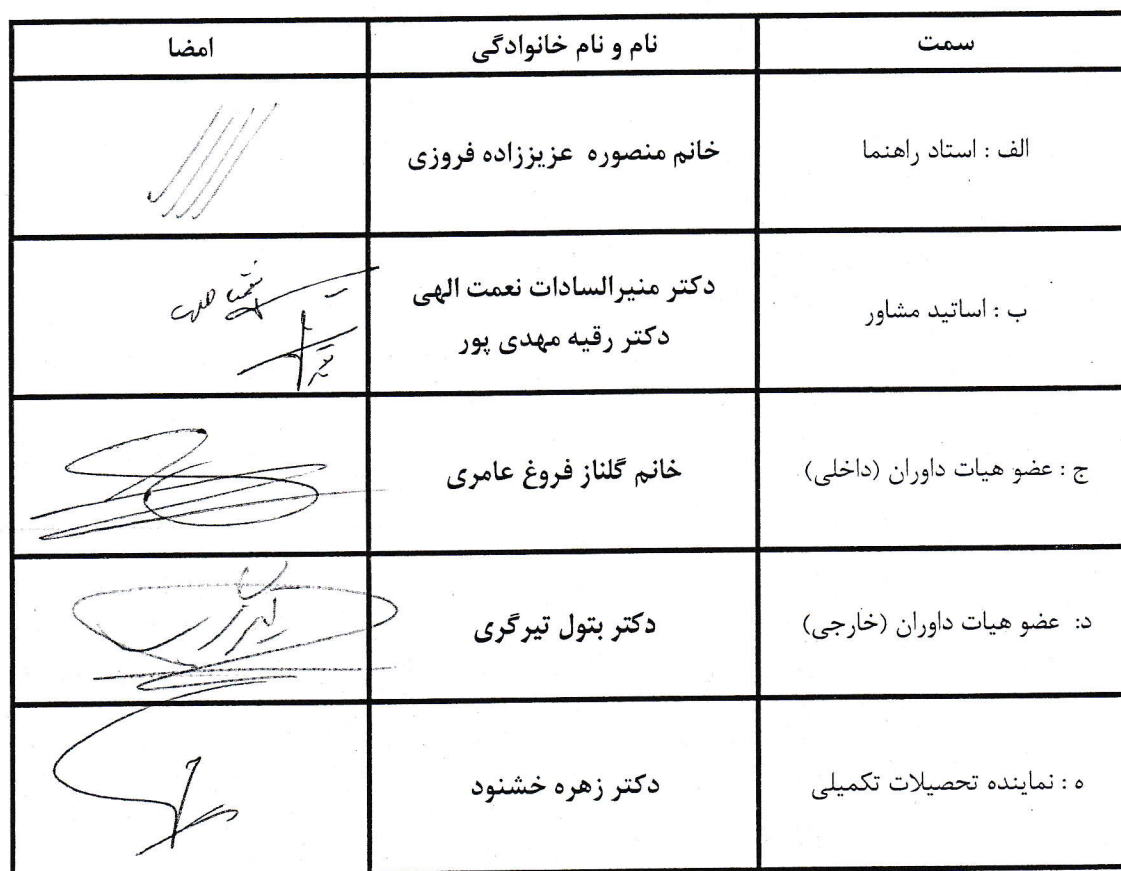 سمت نام و نام خانوادگی امضا
الف : استاد راهنما خانم منصوره عزیززاده فروزی
ب : اساتید مشاور دکتر منیرالسادات نعمت الهی
دکتر رقیه مهدی پور
ج : عضو هیات داوران (داخلی) خانم گلناز فروغ عامری
د: عضو هیات داوران (خارجی) دکتر بتول تیرگری
ه : نماینده تحصیلات تکمیلی دکتر زهره خشنود